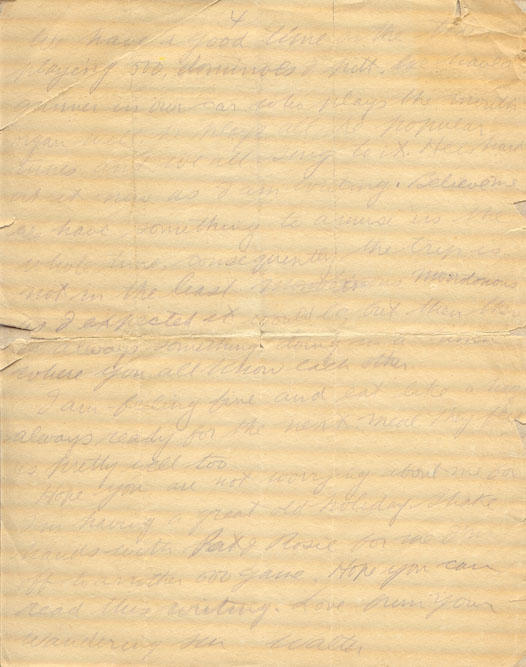 4
We have a good time in the
playing 500, dominoes & pitt. We have a
gunner in our car who plays the mouth
organ well he plays all the popular
tunes and we all sing to it. He's hard
at it now as I am writing. Believe me
we have something to amuse us the
whole time, consequently the trip is
not in the least monotonous
as I expected it would be but then there
is always something doing in a
where you all know each other.
I am feeling fine and eat like a
always ready for the next meal they feed
us pretty well too.
Hope you are not worrying about me for
I'm having a great old holiday. Shake
hands with Pat & Rosie for me I'm
off to another 500 game. Hope you can
read this writing. Love from Your
wandering son Walter